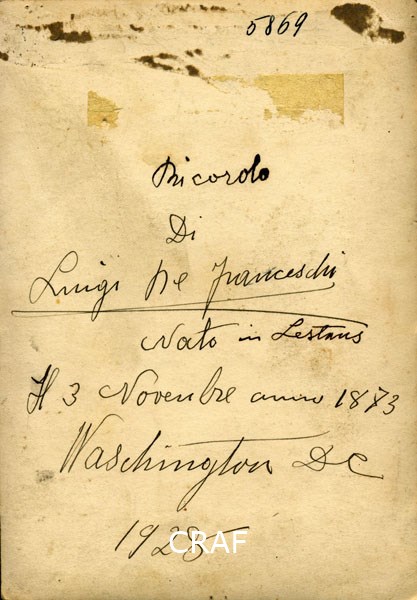 5869
Ricordo
Di
Luigi De Franceschi
Nato in Lestans
Il 3 Novenbre anno 1873
Waschington DC
1925
CRAF